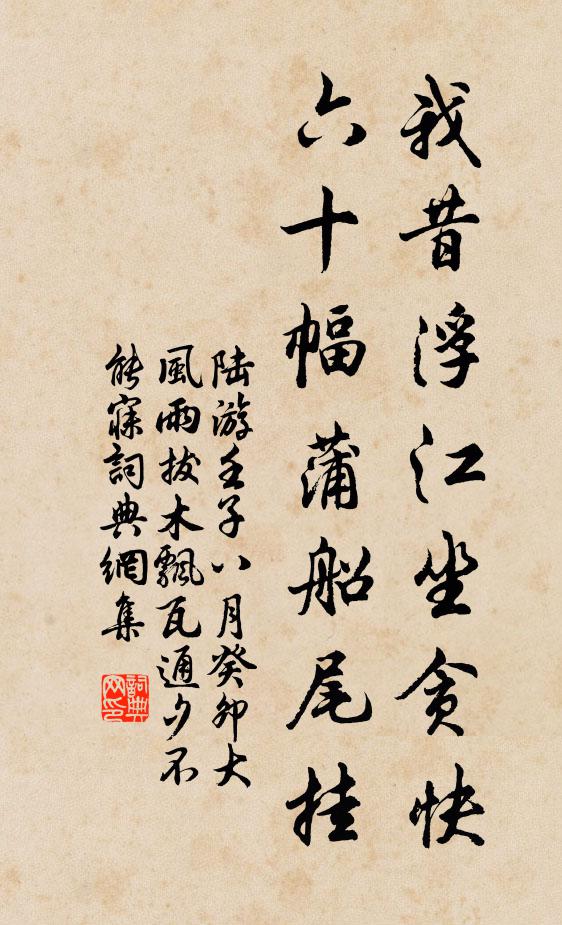 我昔浮江坐貪快
六十幅蒲船尾挂
陆游壬子八月癸卯大
風雨拔木飄瓦通夕不
能寐詞典網集
詞典
网印